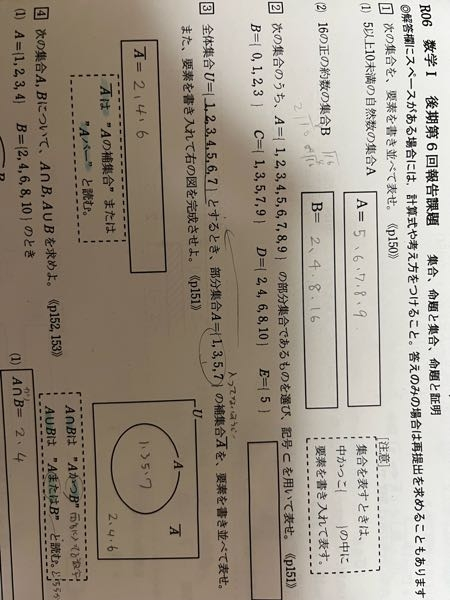 R06 数学Ⅰ 後期第6回報告課題 集合、命題と集合、命題と証明
◎解答欄にスペースがある場合には、計算式や考え方をつけること。答えのみの場合は再提出を求めることもあります
1 次の集合を、要素を書き並べて表せ。《p150》
(1) 5以上10未満の自然数の集合A
A= 5、6、7、8、9
(2) 16の正の約数の集合B
B= 2、4、8、16
[注意]
集合を表すときは、
中かっこ{ }の中に
要素を書き入れて表す。
2 次の集合のうち、A={1,2,3,4,5,6,7,8,9}の部分集合であるものを選び、記号⊂を用いて表せ。《p151》
B={0,1,2,3} C={1,3,5,7,9} D={2,4,6,8,10} E={5}
3 全体集合U={1,2,3,4,5,6,7}とするとき、部分集合A={1,3,5,7}の補集合A̅を、要素を書き並べて表せ。
また、要素を書き入れて右の図を完成させよ。《p151》
A̅= 2、4、6
A̅は "Aの補集合" または
"Aバー" と読む。
U
A
1、3、5、7
A̅
2、4、6
4 次の集合A, Bについて、A∩B, A∪Bを求めよ。《p152, 153》
(1) A={1,2,3,4} B={2,4,6,8,10} のとき
A∩Bは "AかつB"
A∪Bは "AまたはB" と読む。
(1)
A∩B= 2、4